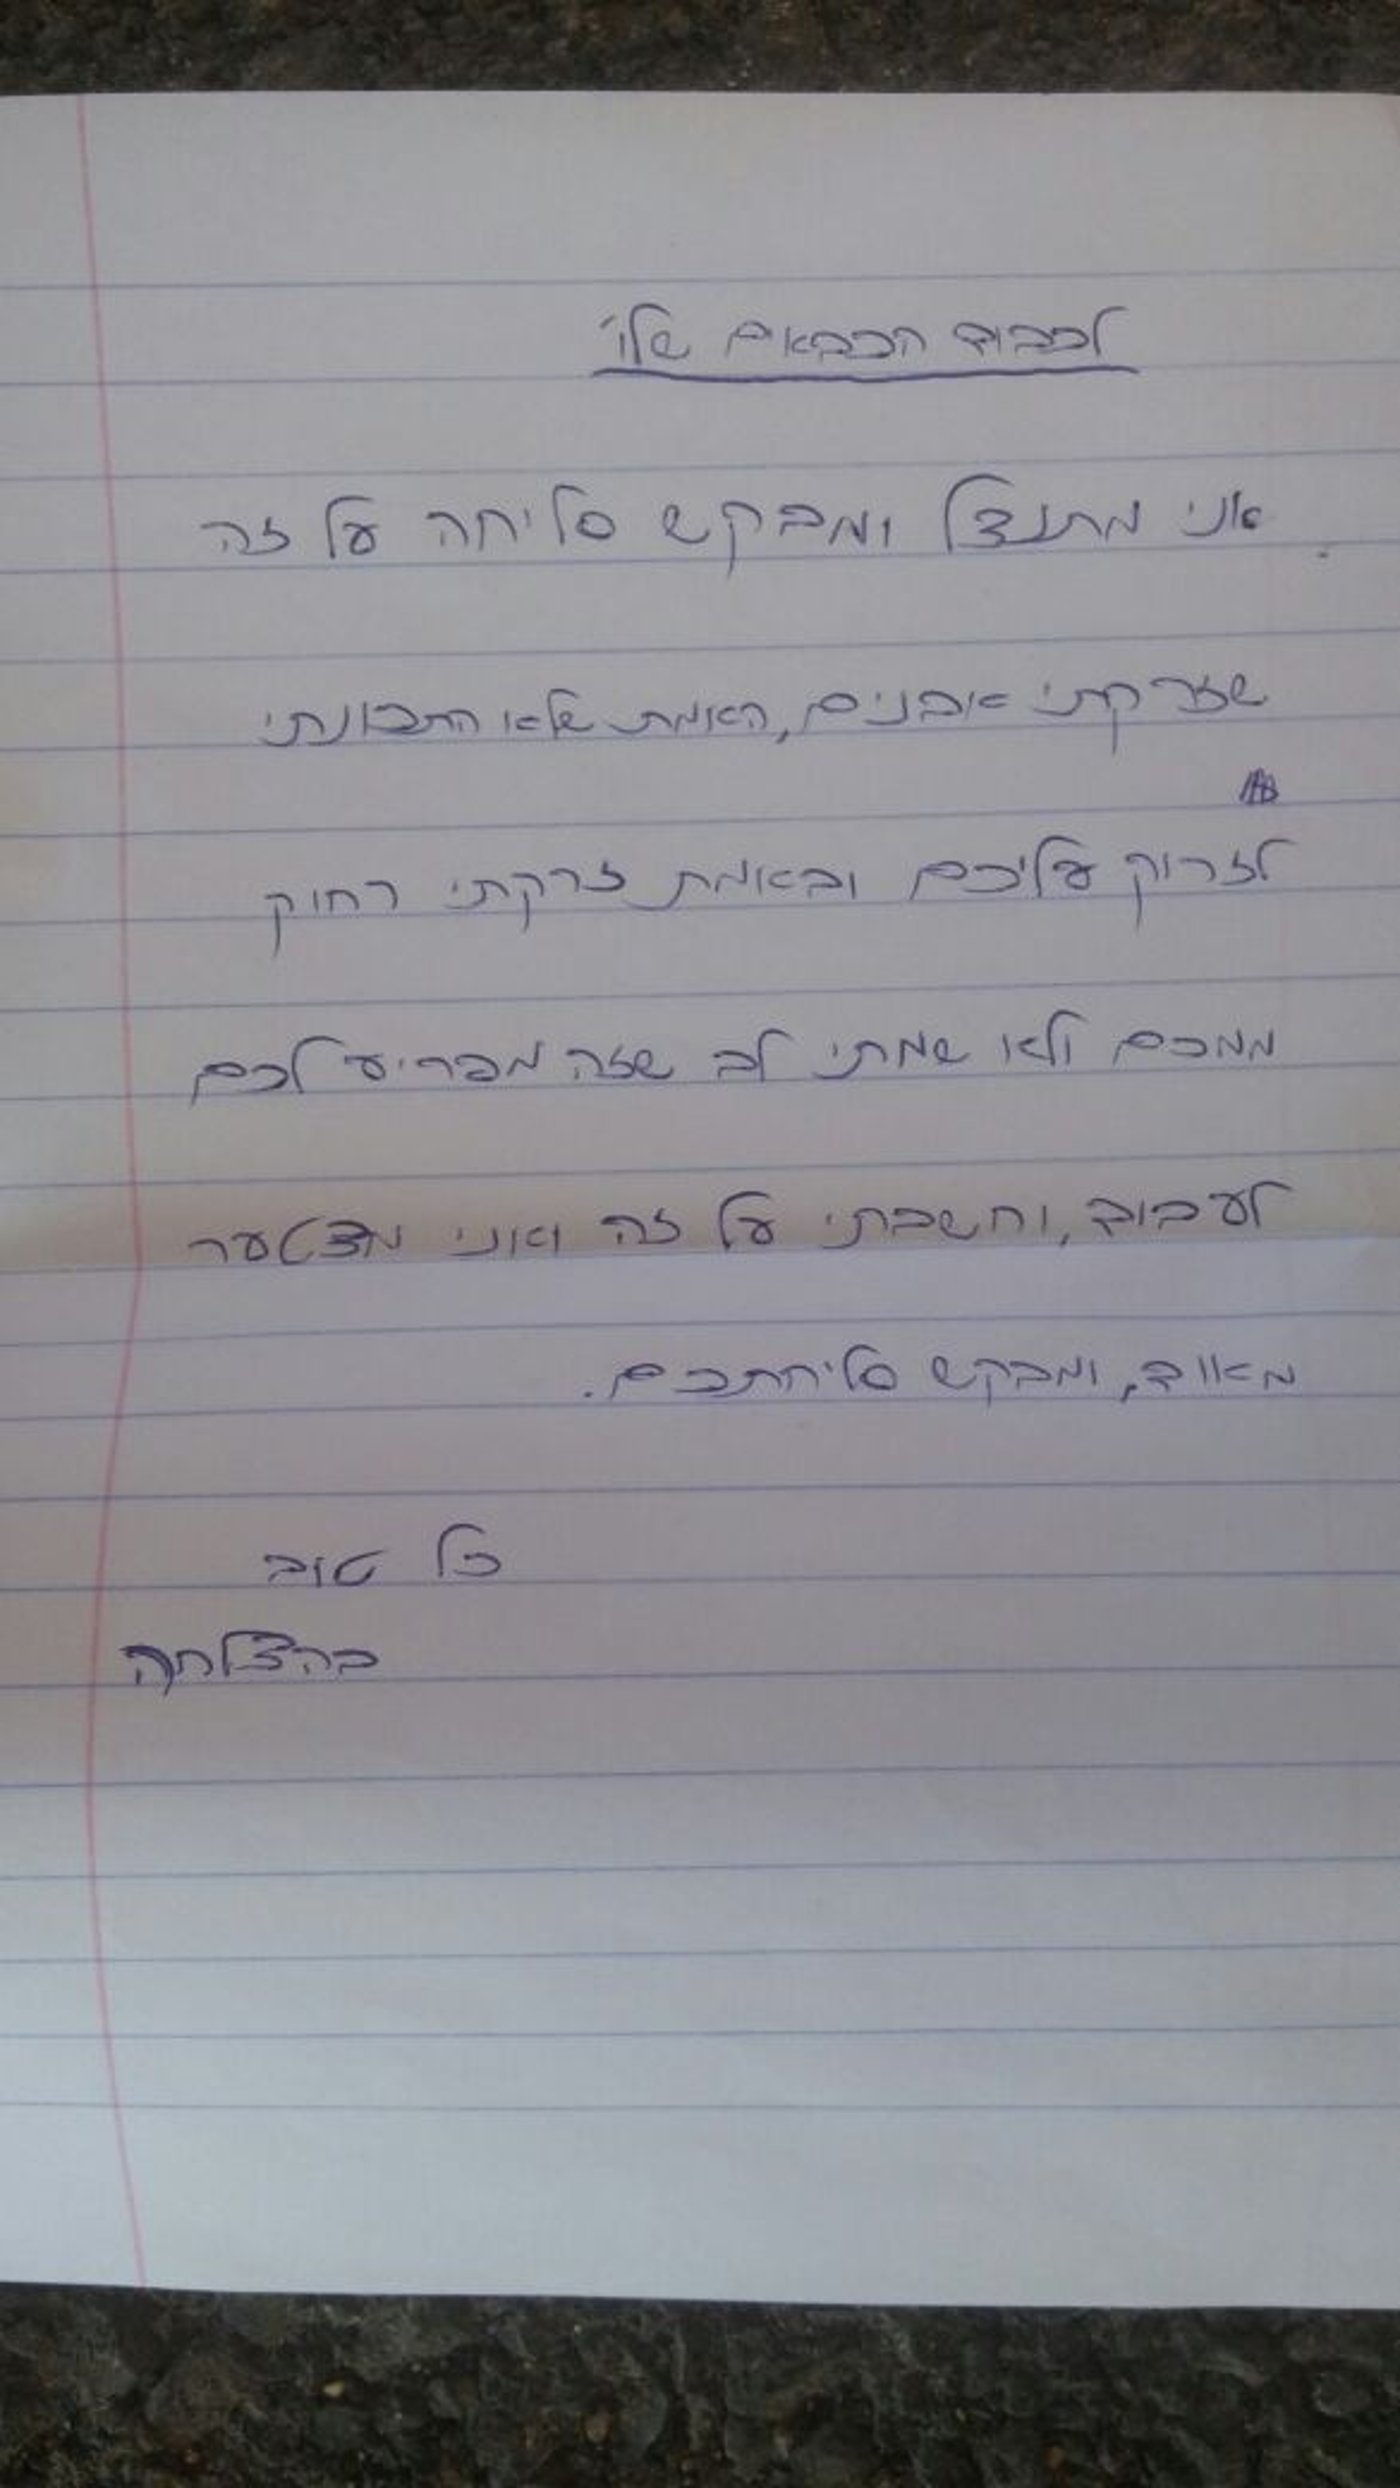 לכבוד הכבאים שלו'
אני מתנצל ומבקש סליחה על זה
שזרקתי אבנים, האמת שלא התכוונתי
לזרוק עליכם ובאמת זרקתי רחוק
ממכם ולא שמתי לב שזה מפריע לכם
לעבוד, וחשבתי על זה ואני מצטער
מאוד, ומבקש סליחתכם.
כל טוב
בהצלחה